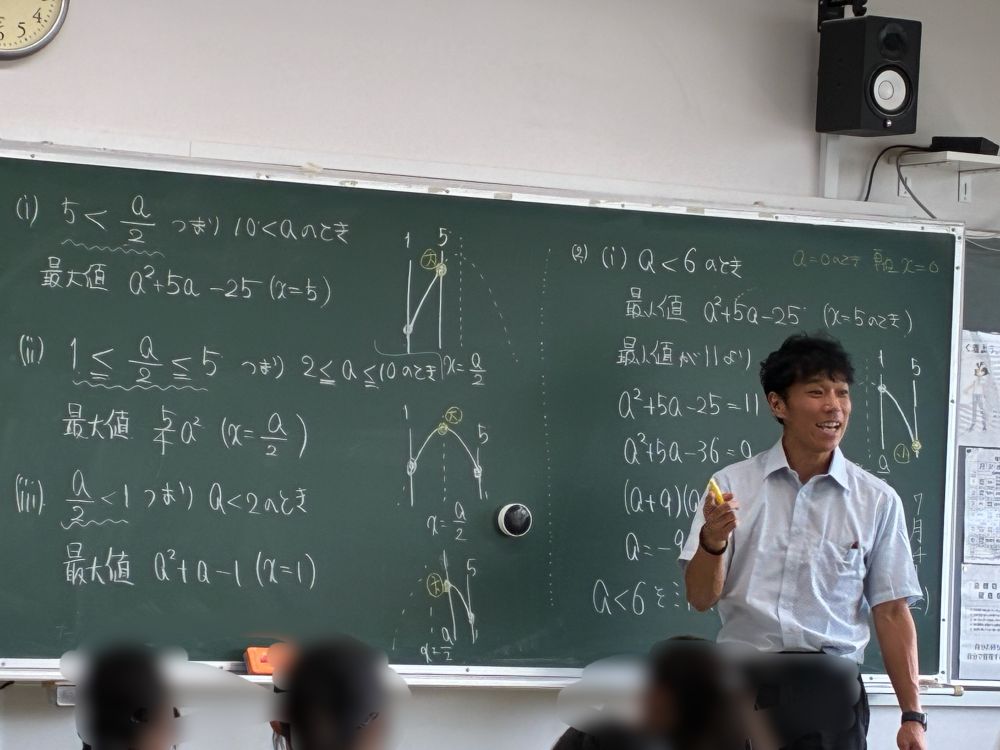 (i) 5 < a/2 つまり 10 < a のとき
最大値 a²+5a-25 (x=5)
(ii) 1 ≦ a/2 ≦ 5 つまり 2 ≦ a ≦ 10 のとき
最大値 5/4 a² (x = a/2)
(iii) a/2 < 1 つまり a < 2 のとき
最大値 a²+a-1 (x=1)
1 5
大
x = a/2
1 大
5
x = a/2
大 5
x = a/2
(2) (i) a < 6 のとき
a=0のとき 軸 x=0
最小値 a²+5a-25 (x=5のとき)
最小値が11より
a²+5a-25=11
a²+5a-36=0
(a+9)(a
a=-9
a<6 を
1 5
小
a
7
月